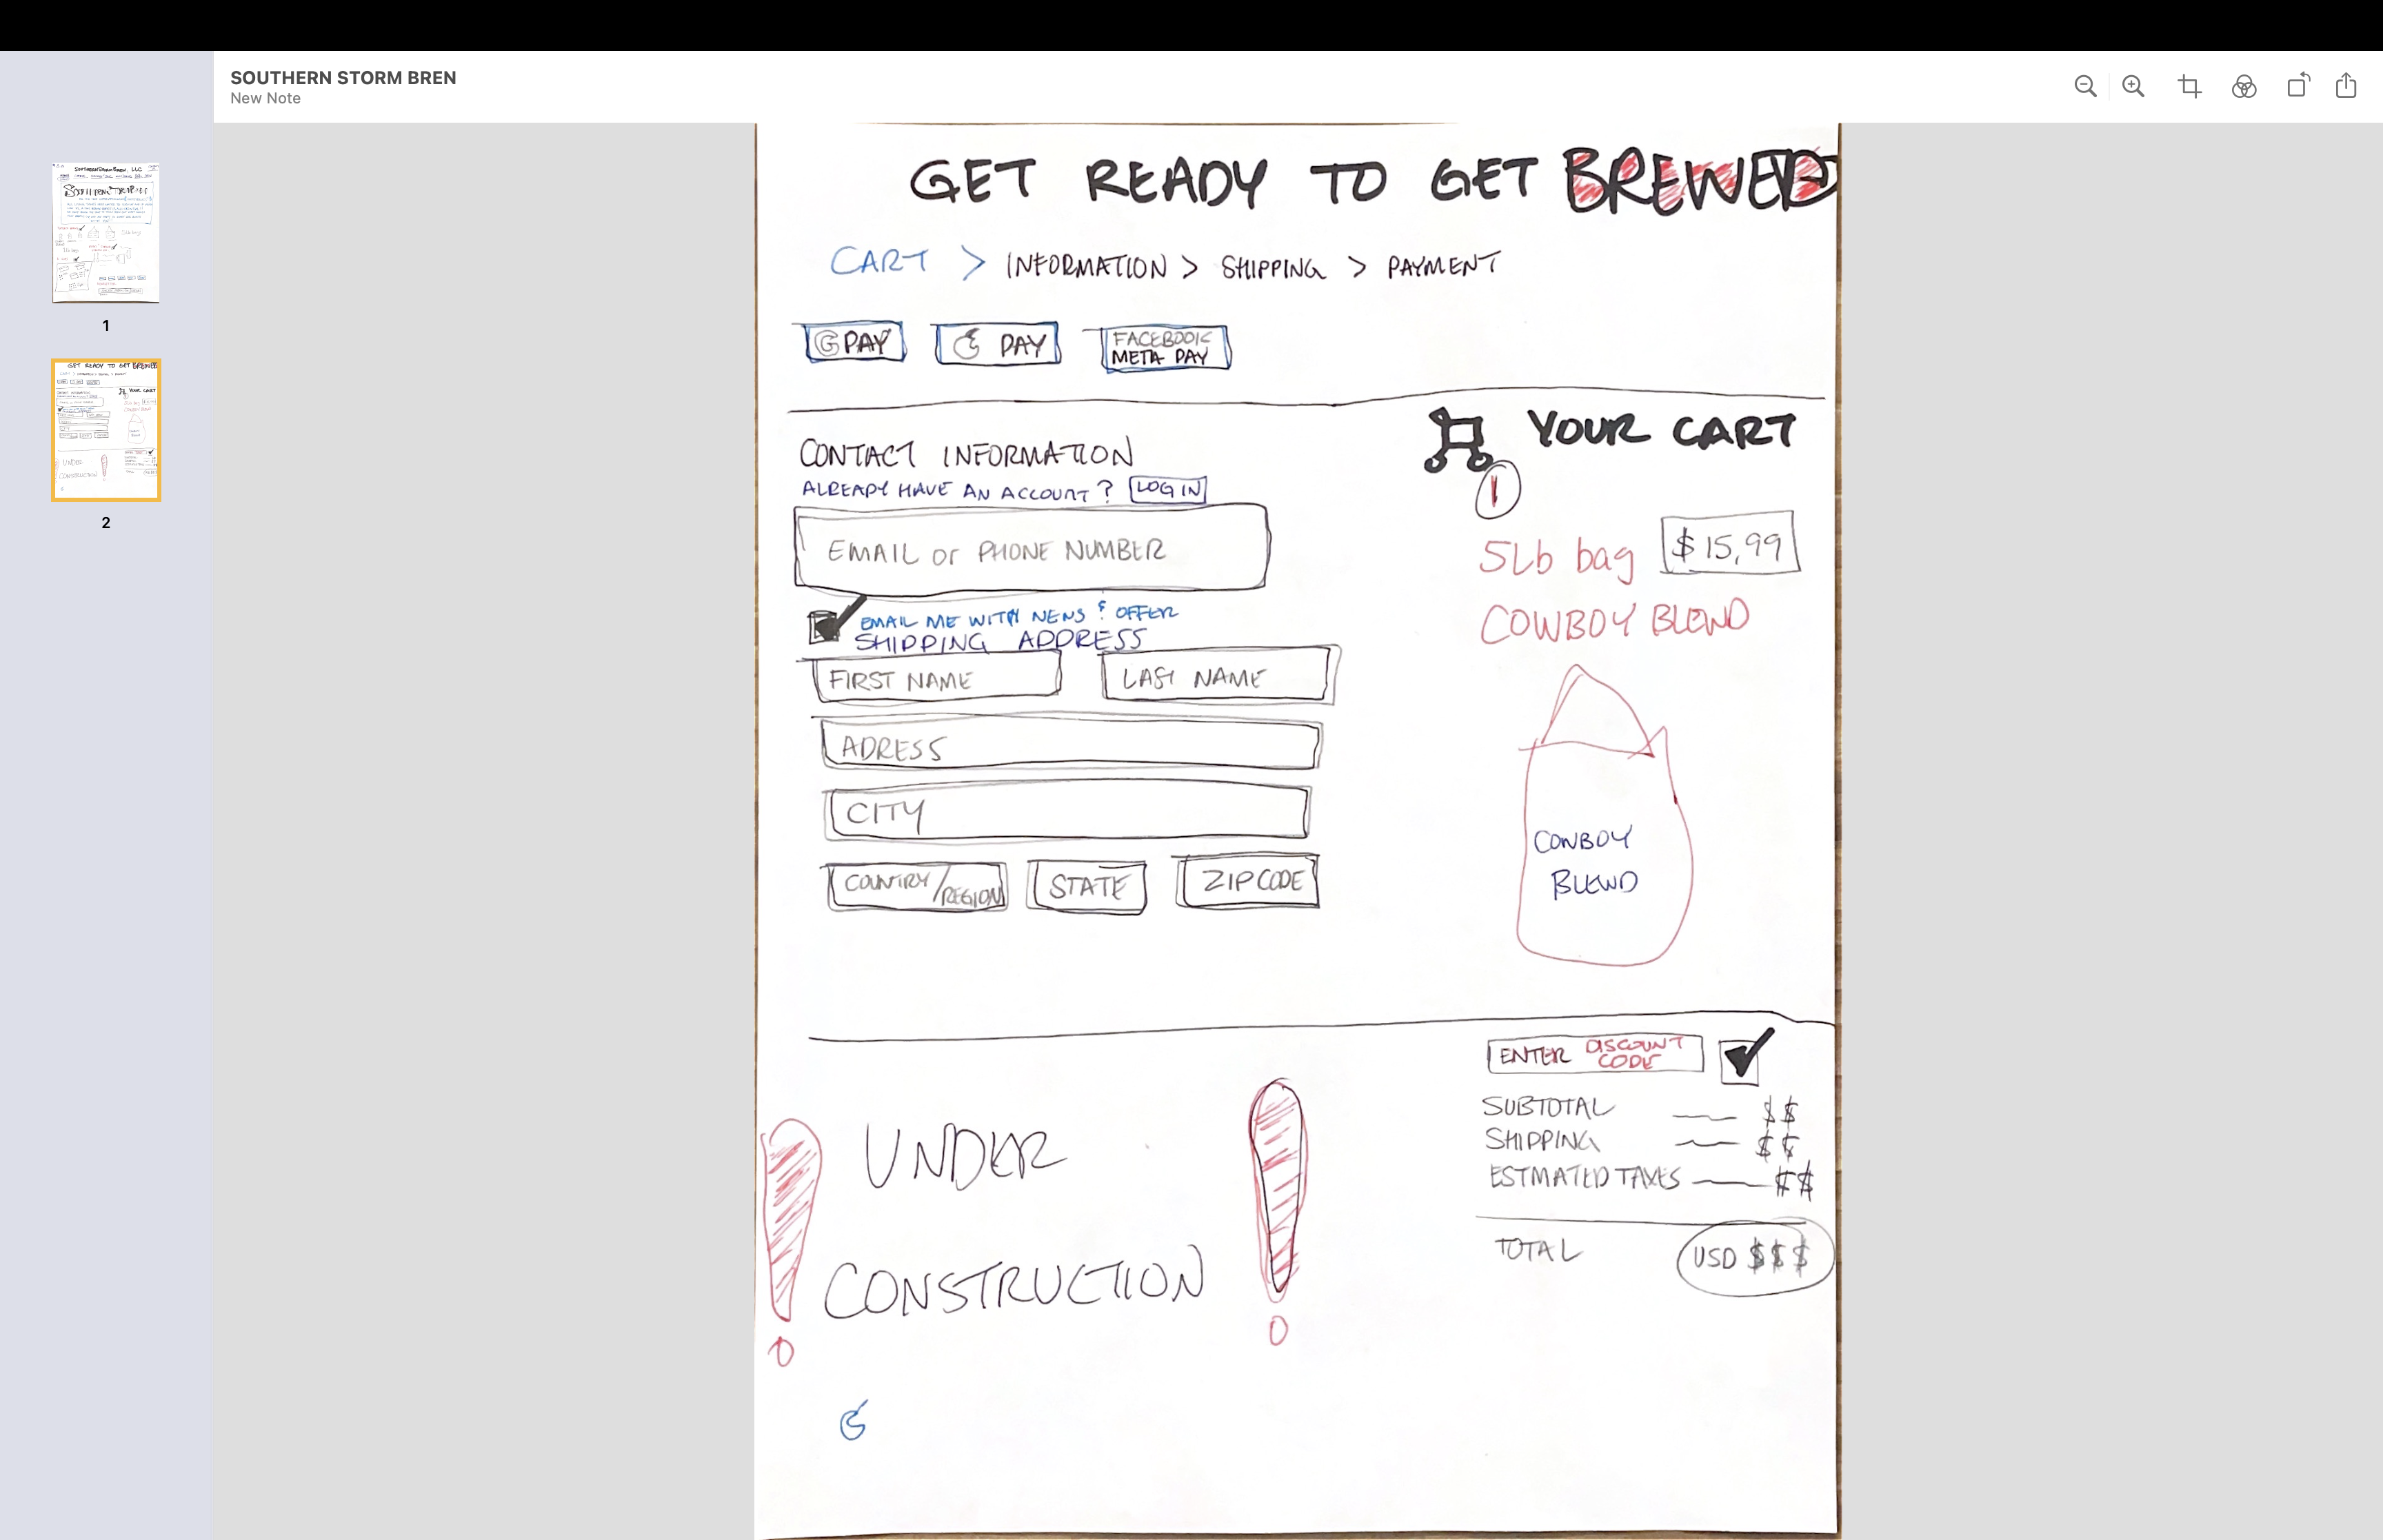 SOUTHERN STORM BREN
New Note
1
2
GET READY TO GET BREWED
CART > INFORMATION > SHIPPING > PAYMENT
G PAY
PAY
FACEBOOK
META PAY
CONTACT INFORMATION
ALREADY HAVE AN ACCOUNT? LOG IN
EMAIL or PHONE NUMBER
EMAIL ME WITH NEWS & OFFER
SHIPPING ADDRESS
FIRST NAME
LAST NAME
ADRESS
CITY
COUNTRY/REGION
STATE
ZIPCODE
YOUR CART
1
5Lb bag $15,99
COWBOY BLEND
COWBOY
BLEND
ENTER DISCOUNT
CODE
SUBTOTAL $$
SHIPPING $$
ESTMATED TAXES $$
TOTAL USD $$$
UNDER
CONSTRUCTION